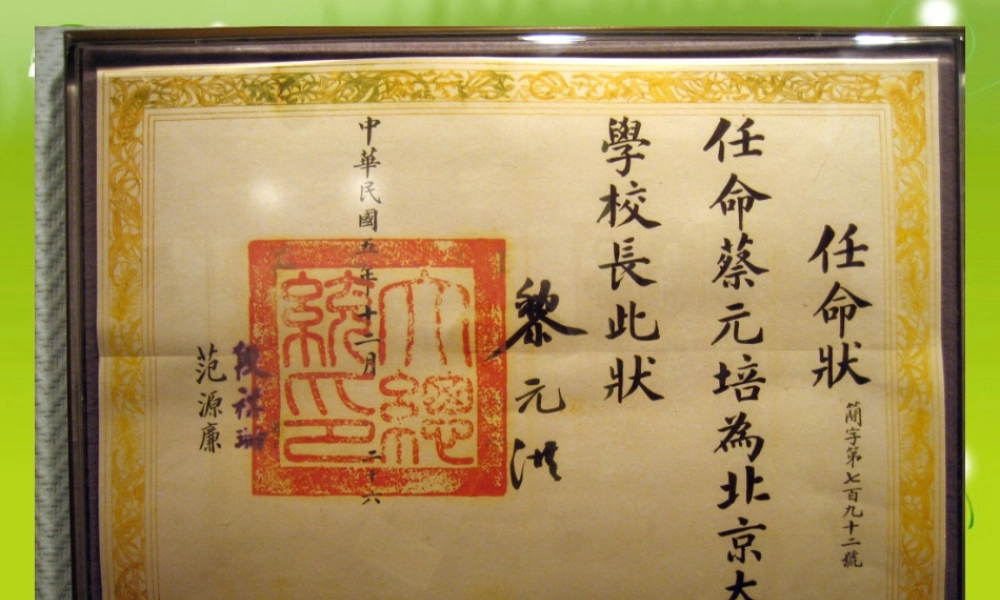 任命狀
簡字第七百九十二號
任命蔡元培為北京大
學校長此狀
黎元洪
大總統印
中華民國五年十二月二十六
段祺瑞
范源廉